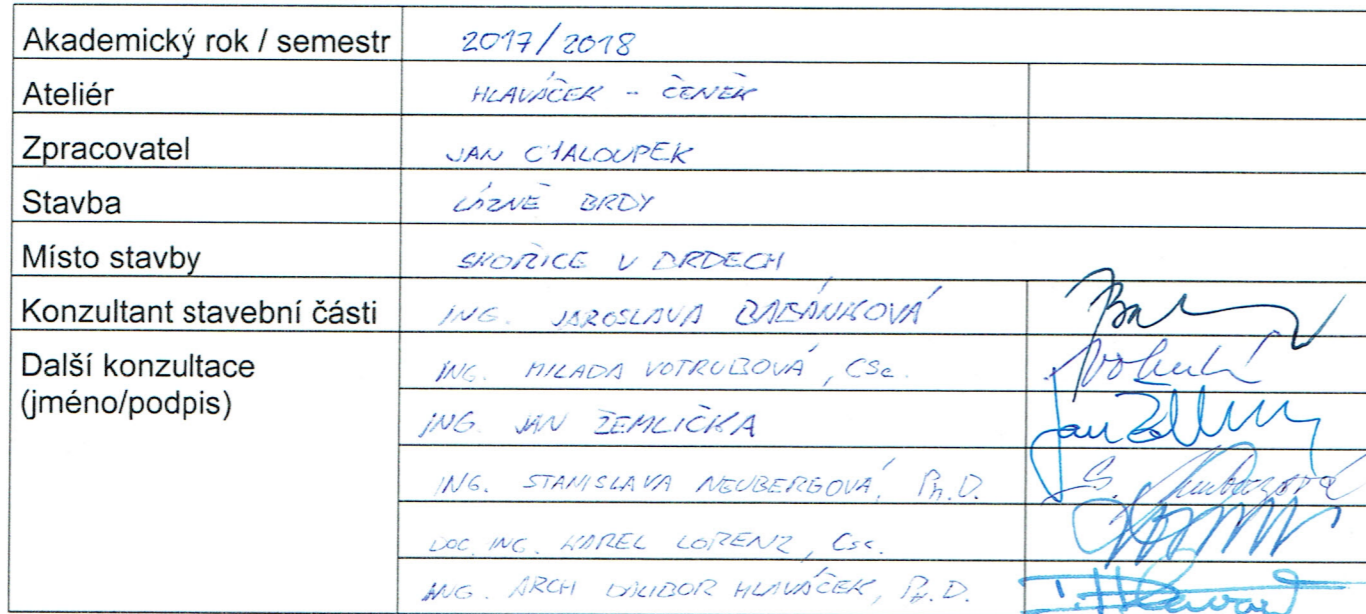 Akademický rok / semestr 2017/2018
Ateliér HLAVÁČEK - ČENĚK
Zpracovatel JAN CHALOUPEK
Stavba LÁZNĚ BRDY
Místo stavby SKOŘICE V BRDECH
Konzultant stavební části ING. JAROSLAVA BABÁNKOVÁ
Další konzultace ING. MILADA VOTRUBOVÁ, CSc.
(jméno/podpis)
ING. JAN ŽEMLIČKA
ING. STANISLAVA NEUBERGOVÁ, Ph.D.
DOC. ING. KAREL LORENZ, CSc.
ING. ARCH DALIBOR HLAVÁČEK, Ph.D.